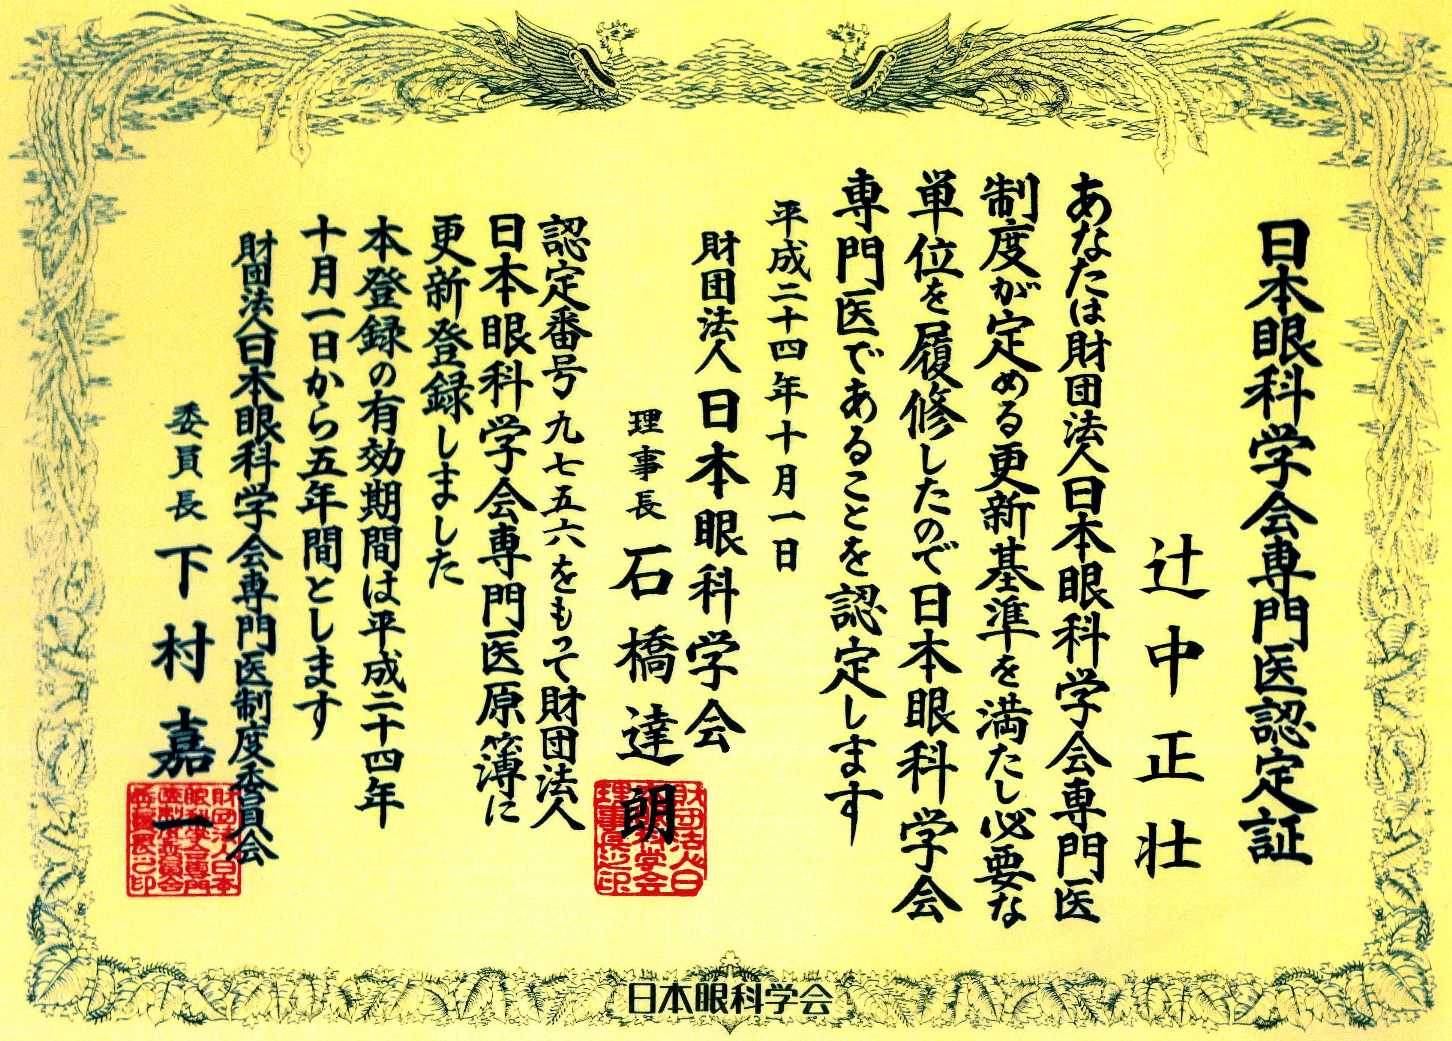 日本眼科学会専門医認定証
辻中正壮
あなたは財団法人日本眼科学会専門医
制度が定める更新基準を満たし必要な
単位を履修したので日本眼科学会
専門医であることを認定します
平成二十四年十月一日
財団法人日本眼科学会
理事長 石橋達朗
認定番号九七五六をもって財団法人
日本眼科学会専門医原簿に
更新登録しました
本登録の有効期間は平成二十四年
十月一日から五年間とします
財団法人日本眼科学会専門医制度委員会
委員長 下村嘉一
財団法人日
本眼科学会
理事長之印
財団法人日本
眼科学会専門
医制度委員会
委員長之印
日本眼科学会